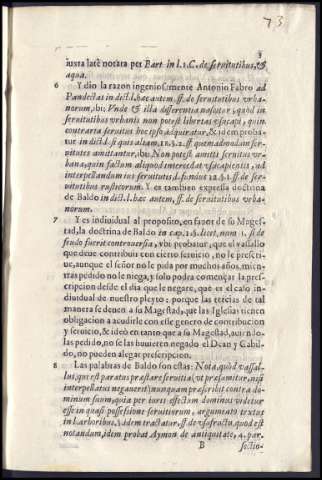 73
3
iuxta latè notata per Bart in l. 1. C. de seruitutibus, &
aqua.
6 Y dio la razon ingeniosamente Antonio Fabro ad
Pandectas in dict. l. hæc autem, ff. de seruitutibus vrba-
norum, ibi: Vnde & illa differentia nascitur, quod in
seruitutibus vrbanis non potest libertas vsucapi, quin
contraria seruitus hoc ipso adquiratur, & idem proba-
tur in dict. l. si quis altam 12. §. 1. ff. quemadmodum ser-
uitutes amittantur, ibi: Non potest amitti seruitus vr-
bana, quin factum aliquod intercedat vsucapientis, ad
interpellandum ius seruitutis d. fundus 12. §. 1. ff. de ser-
uitutibus rusticorum. Y es tambien expressa doctrina
de Baldo in dict. l. hæc autem, ff. de seruitutibus vrba-
norum.
7 Y es indiuidual al proposito, en fauor de su Mages-
tad, la doctrina de Baldo in cap. 1. §. licet, num. 1. si de
feudo fuerit controuersia, vbi probatur, que el vassallo
que deue contribuir con cierto seruicio, no le prescri-
ue, aunque el señor no le pida por muchos años, mien-
tras pedido no le niega, y solo podra començar la pres-
cripcion desde el dia que le negare, que es el caso in-
diuidual de nuestro pleyto: porque las tercias de tal
manera se deuen a su Magestad, que las Iglesias tienen
obligacion a acudirle con este genero de contribucion
y seruicio, & ideò en tanto que a su Magestad, auiendo-
las pedido, no se las huuieren negado el Dean y Cabil-
do, no pueden alegar prescripcion.
8 Las palabras de Baldo son estas: Nota, quòd vassal-
lus, qui est paratus præstare seruitia (vt præsumitur, nisi
interpellatus negauerit) nunquam præscribit contra do-
minum suum, quia per iuris effectum dominus videtur
esse in quasi possessione seruitiorum, argumento textus
in l. arboribus, § idem tractatur, ff. de vsufructu, quod est
notandum, idem probat Aymon de antiquitate, 4. par.
B sectio-